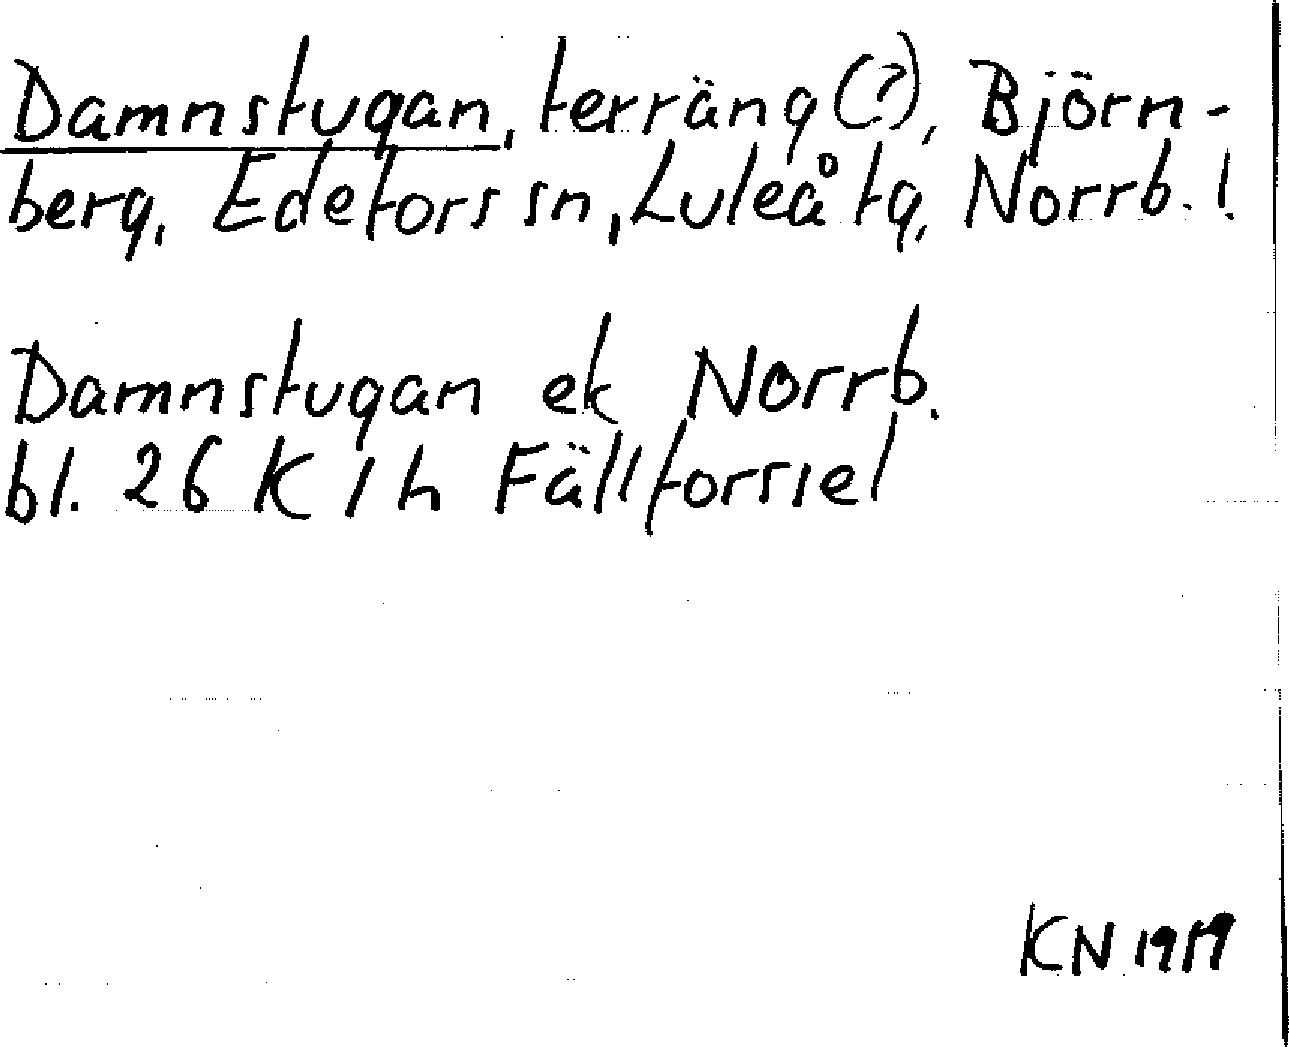 Damnstugan, terräng (?), Björn-
berg, Edefors sn, Luleå tg, Norrb. l.
Damnstugan ek Norrb.
bl. 26 K 1 h Fällforssel
KN